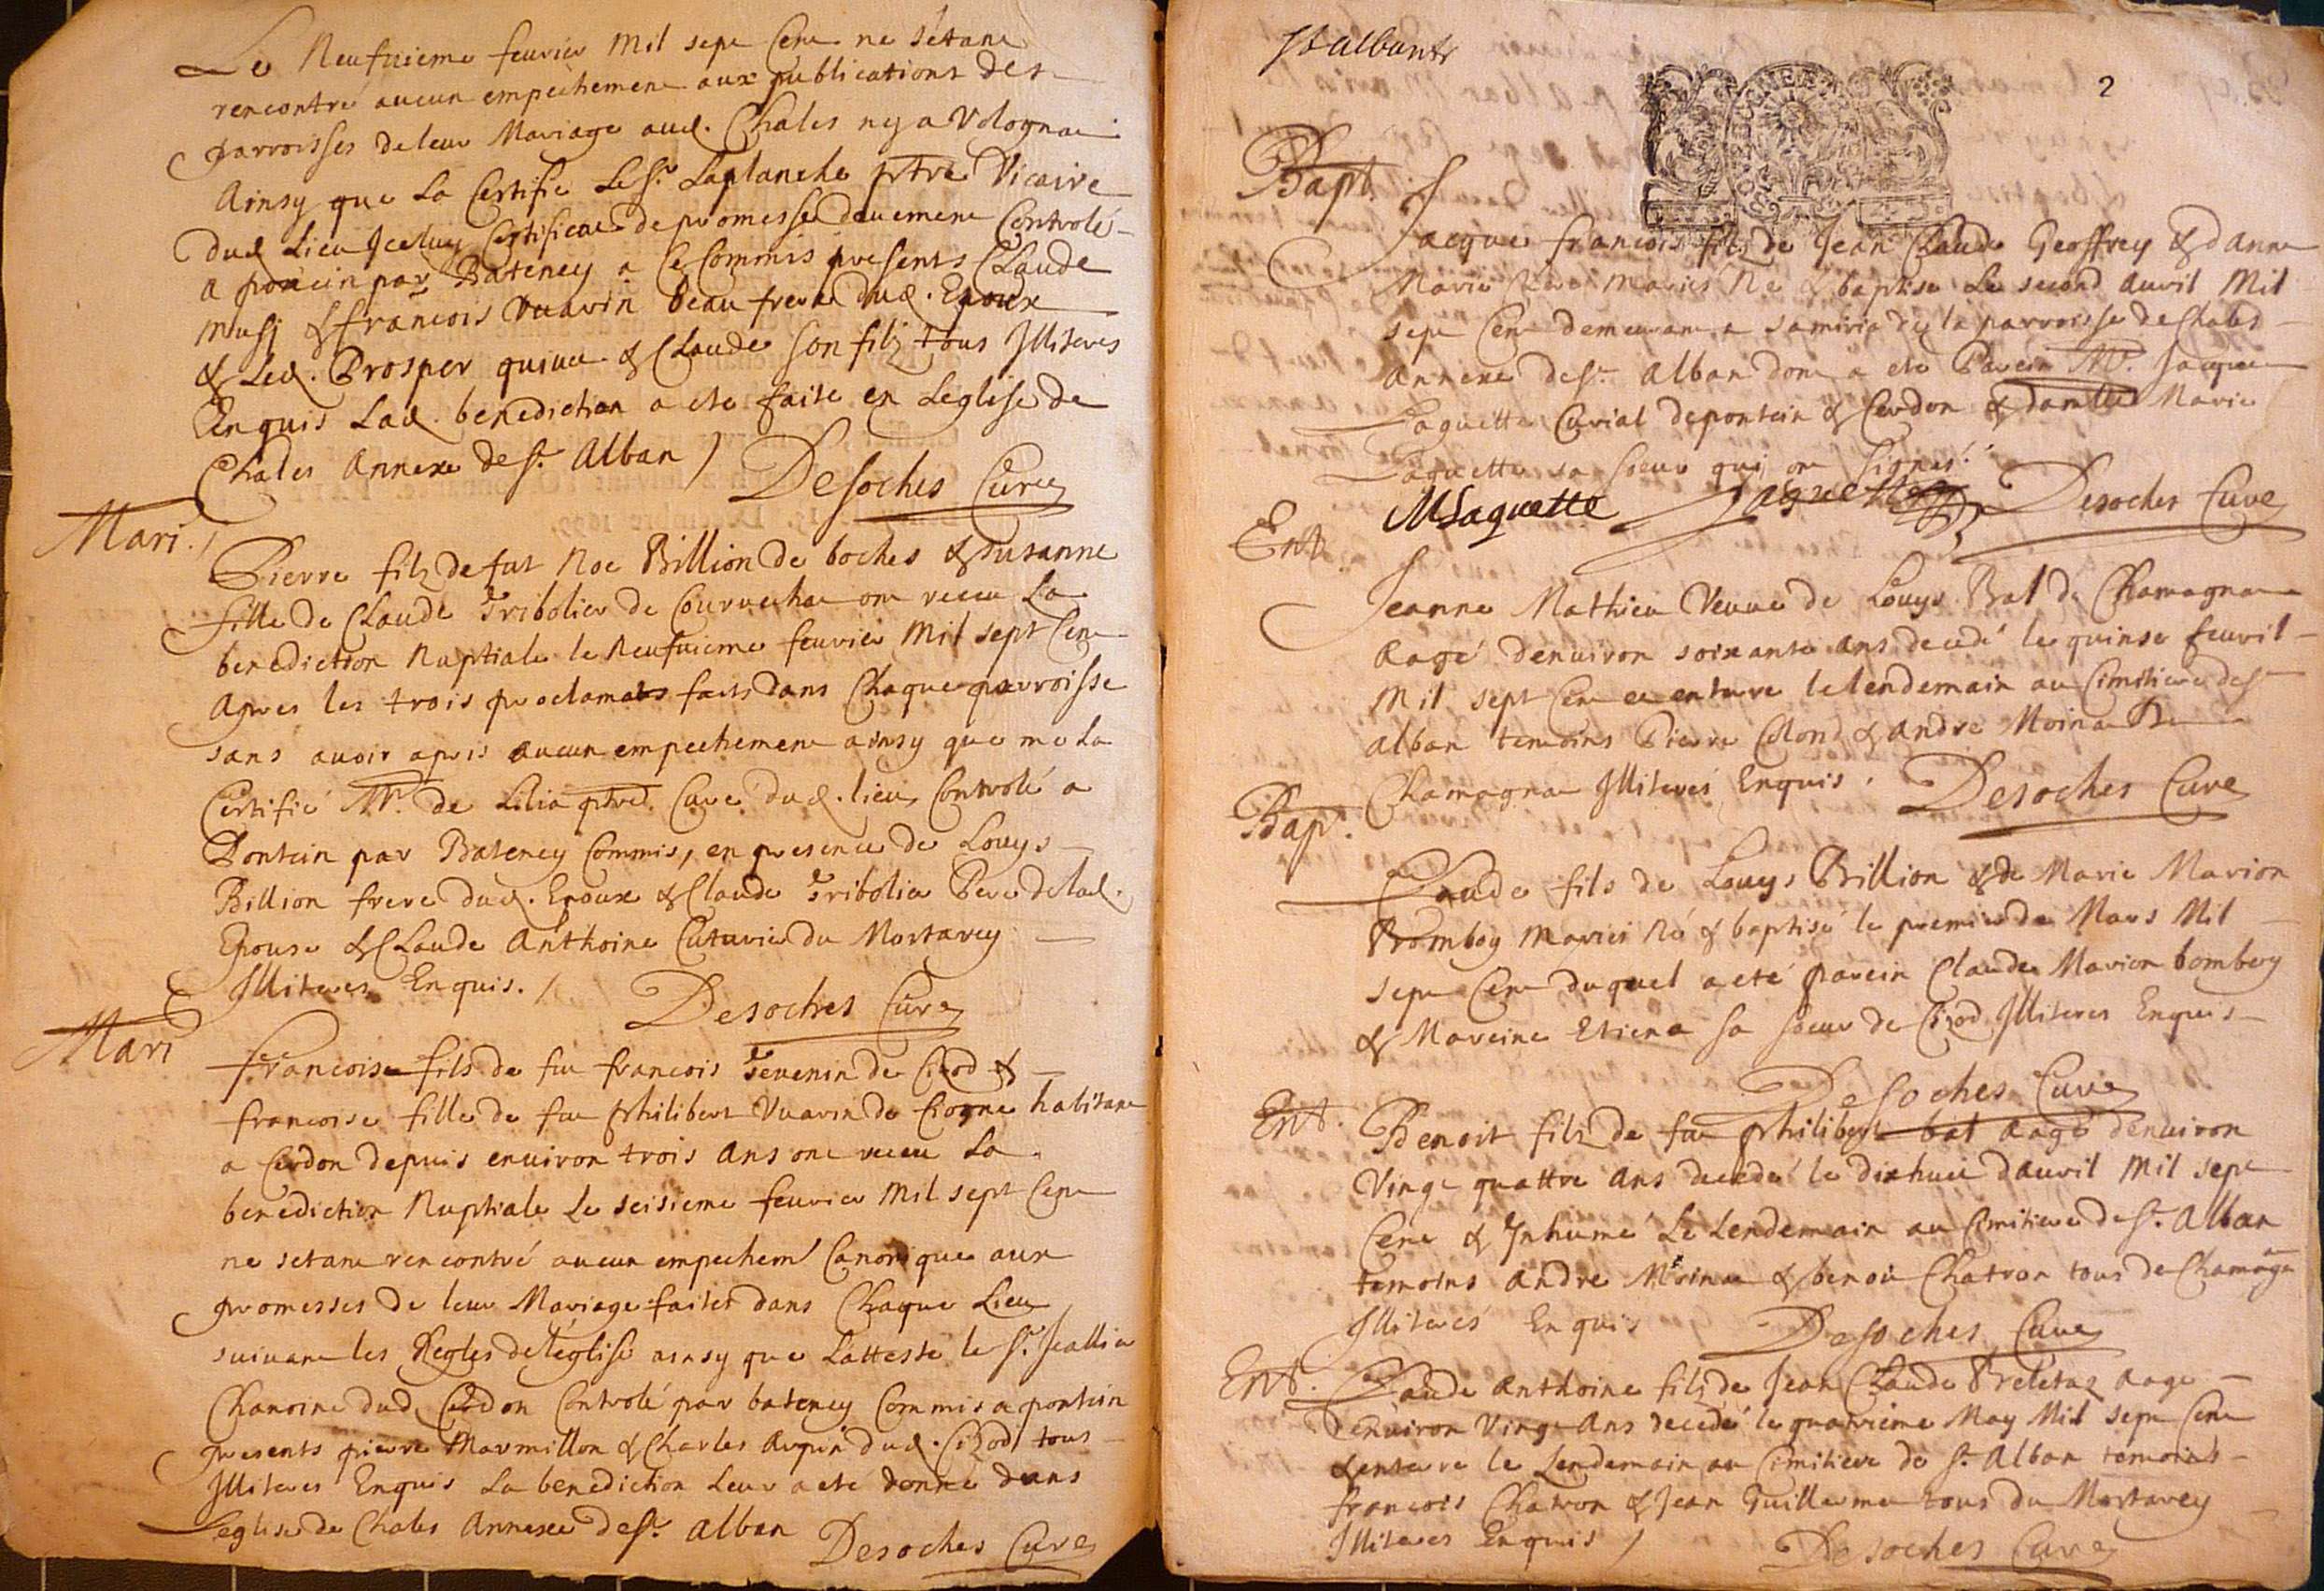 Le Neufuieme feurier Mil sept Cent ne s'étant
rencontré aucun empechement aux publications des
parroisses de leur Mariage aud. Chales ny a Volognat
Ainsy que La Certifié Le Sr. Laplanche ptre Vicaire
dud Lieu Iceluy Certificat de promesse deuement Controlé
a poncin par Bateney a Ce Commis presents Claude
& francois Vuarin beau frere dud. Epoux
& Led. Prosper & Claude son filz tous Illiteres
Enquis Lad. benediction a ete faite en Leglise de
Chales Annexe de St. Alban /
Desoches Curé
Mari. /
Pierre filz de fut Noe Billion de boches & Susanne
fille de Claude Tribolier de ont receu La
benediction Nuptiale le Neufuieme feurier Mil sept Cent
Apres les trois proclamats faits dans Chaque parroisse
sans auoir apris aucun empechement ainsy que me La
Certifié Mr. de Lilia ptre Curé dud. lieu Controlé a
Pontcin par Bateney Commis, en presence de Louys
Billion frere dud. Epoux & Claude Tribolier Pere de lad.
Epouse & Claude Anthoine Cuturier du Mortarey
Illiteres Enquis. /
Desoches Curé
Mari
francois fils de fut francois Teuenin de Cizod &
francoise fille de fut philibert Vuarin de habitant
a Cerdon depuis enuiron trois Ans ont receu La
benediction Nuptiale Le seisieme feurier Mil sept Cent
ne setant rencontré aucun empechemt Canonique aux
promesses de leur Mariage faites dans Chaque Lieu
suiuant les Regles de l'église ainsy que L'atteste le Sr. Jeallier
Chanoine dud. Cerdon Controlé par bateney Commis a pontcin
presents pierre Marmillon & Charles dud. Cizod tous
Illiteres Enquis La benediction Leur a eté donné dans
Leglise de Chales Annexe de St. Alban
Desoches Curé
St albant
2
Bapt.
Jacque francois filz de Jean Claude Geoffrey & danne
Marie mariés Né & baptisé Le second auril Mil
sept Cent demeurant a samiria de la parroisse de Chales
Annexe de St. Alban dont a eté Parein Mr. Jacque
Laguette Curial de pontcin & Cerdon & damlle Marie
Laguette sa soeur qui ont signés.
MLaguette Laguette Desoches Curé
Ent.
Jeanne Mathieu Veuue de Louys Bal de Chamagnat
aagé denuiron soixante ans decedé le quinse feuril
Mil sept Cent et enterre le lendemain au Cimitiere de St
alban temoins Pierre Colond & andre Moinat De
Chamagnat Illiterés Enquis.
Desoches Curé
Bapt.
Claude fils de Louys Billion & de Marie Marion
Bomboy Mariés Né & baptisé le premier de Mars Mil
sept Cent duquel a eté parein Claude Marion bomboy
& Mareine Etiena sa soeur de Cizod Illiteres Enquis
Desoches Curé
Ent.
Benoit filz de fut philibert bal aagé denuiron
Vingt quattre Ans decedé le dixhuit dauril Mil sept
Cent & Inhumé Le Lendemain au Cimitiere de St. Alban
temoins andre Moinat & benoit Chatron tous de Chamagn
Illiterés Enquis
Desoches Curé
Ent.
Claude Anthoine filz de Jean Claude Preletaz aagé
denuiron Vingt Ans decedé le quatrieme May Mil sept Cent
& enterre le Lendemain au Cimitiere de St. Alban temoins
francois Chatron & Jean Guillerme tous du Mortarey
Illiteres Enquis /
Desoches Curé